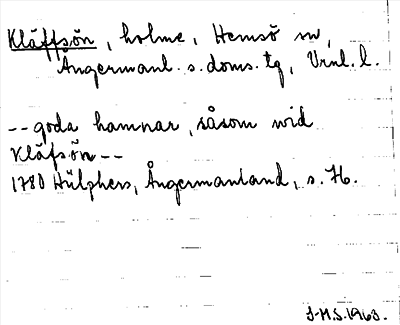 Kläffsön, holme, Hemsö sn,
Ångermanl. s. doms. tg, Vrnl. l.
-- goda hamnar, såsom wid
Kläfsön --
1780 Hülphers, Ångermanland, s. 76.
J-H.S. 1963.